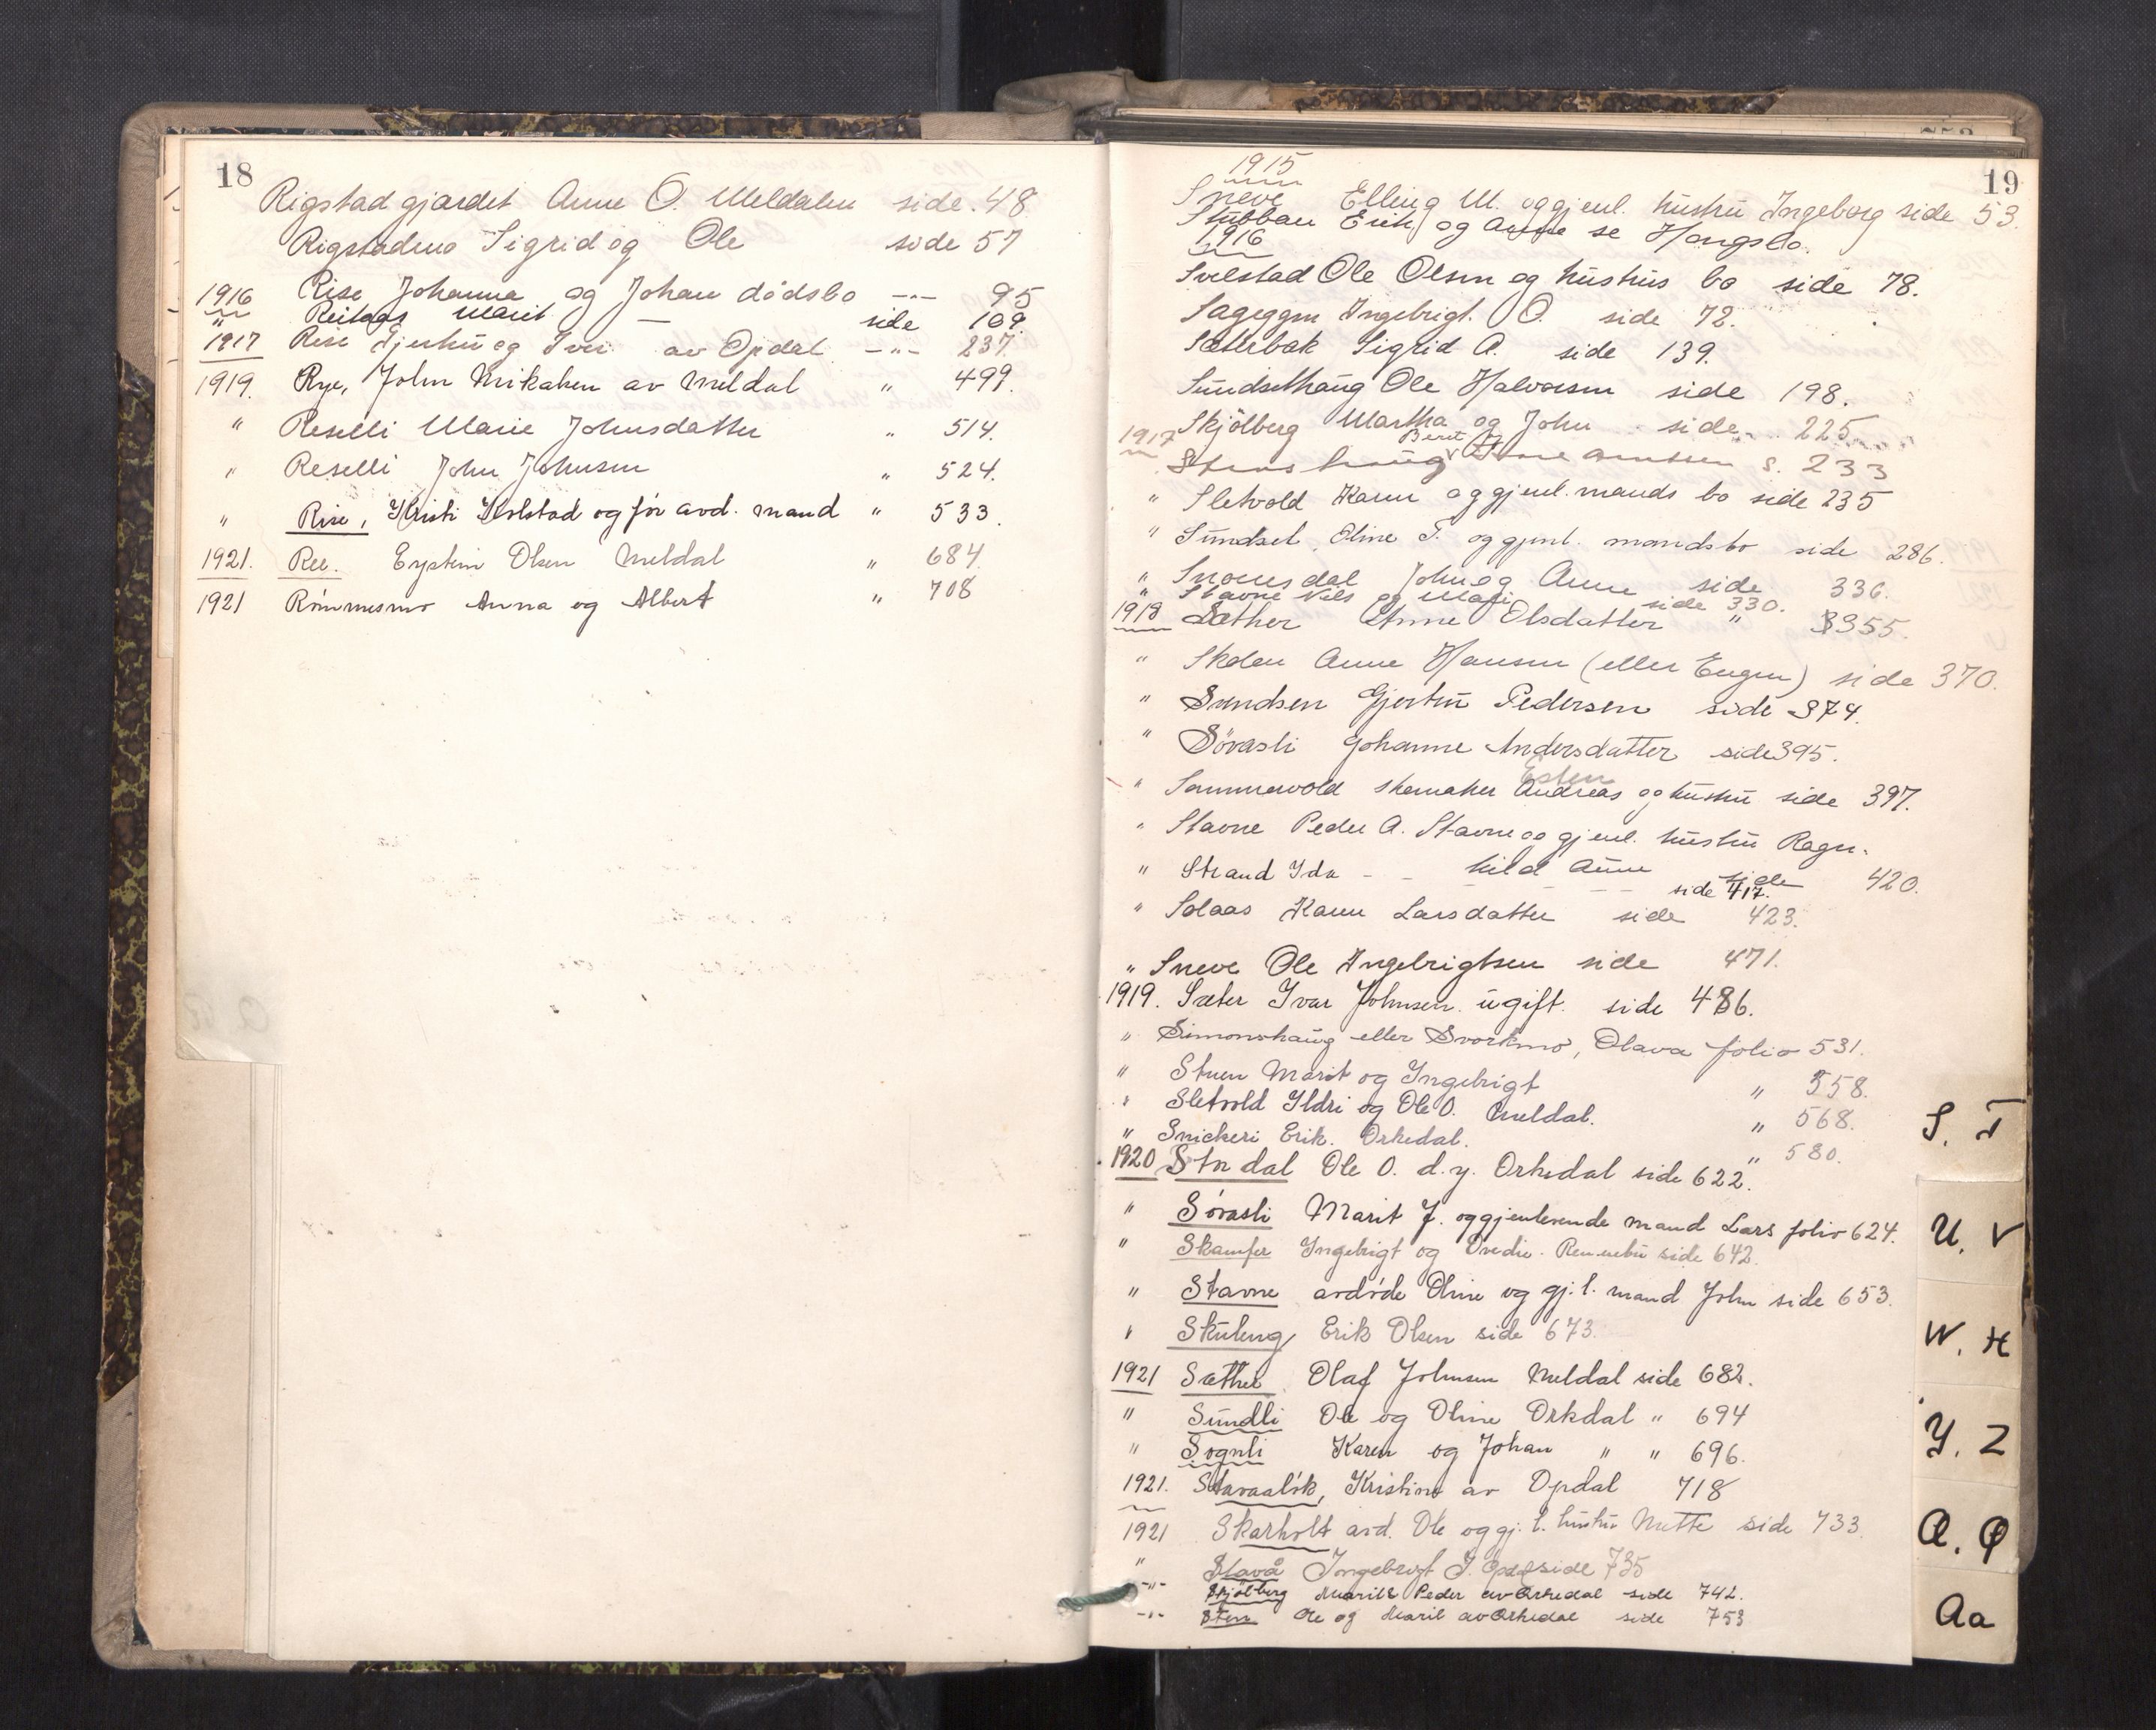 18
Rigstadgjærdet Anne O. Meldalen side. 48
Rigstadmo Sigrid og Ole side 57
1916 Rise Johanna og Johan dödsbo -"- 95
" Marit — side 109.
1917 Rise og Iver av Opdal -"- 237.
1919. Rye, John Mikalsen av Meldal " 499.
" Reselli Marie Johnsdatter " 514.
" Reselli John Johnsen " 524.
" Rise, Kristi Stolstad og för avd. mand " 533.
1921. Ree. Eystein Olsen Meldal " 684.
1921 Römmesmo Anna og Albert " 708
19
1915
Sneve Elling M. og gjenl. hustru Ingeborg side 53.
Stubban Erik og Anne se Haugsbo.
1916
Ole Olsen og hustrus bo side 78.
Sageggen Ingebrigt. O. side 72.
Sætterbak Sigrid A. side 139.
Sundsethaug Ole Halvorsen side 198.
Skjölberg Martha og John side 225
1917 Stenshaug Berit s. 233
" Sletvold Karen og gjenl. mands bo side 235
" Sundset, Eline T. og gjenl. mandsbo side 286.
" Snoensdal John og Anne side 336.
" Stavne Nils og Mari side 330.
1918 Sæther Anne Olsdatter " 355.
" Skolen Anne Hansen (eller Engen) side 370.
" Svendsen Gjertru Pedersen side 374.
" Sörasli Johanne Andersdatter side 395.
Esten
" Sommervold skomaker Andreas og hustru side 397.
" Stavne Peder A. Stavne og gjenl. hustru Ragn-
hild Anne side 420.
" Strand Ida - - - - - side 417.
" Solaas Karen Larsdatter side 423.
" Sneve Ole Ingebrigtsen side 471.
1919. Sæter Ivar Johnsen ugift. side 486.
" Simonshaug eller Svorkmo, Olava folio 531.
" Stuen Marit og Ingebrigt " 558.
" Sletvold Ildri og Ole O. Meldal. " 568.
" Snickeri Erik. Orkedal. " 580.
1920 Stordal Ole O. d.y. Orkedal side 622.
" Sörasli Marit J. og gjenlevende mand Lars folio 624.
" Skamfer Ingebrigt og Rennebu side 642.
" Stavne avdöde Oline og gj. l. mand John side 653.
" Skuleng Erik Olsen side 673.
1921 Sæther Olaf Johnsen Meldal side 682.
" Sundli Ole og Oline Orkdal " 694
" Sognli Karen og Johan " " 696.
1921. Stavaslök, Kristine av Opdal 718
1921 Skarholt avd. Ole og gj. l. hustru Mette side 733.
" Stavå Ingebrigt J. Opdal side 735
-"- Skjölberg Marit & Peder av Orkedal side 742.
-"- Sten Ole og Marit av Orkedal side 753
S. T
U. V
W. H
Y. Z
Æ. Ø
Aa